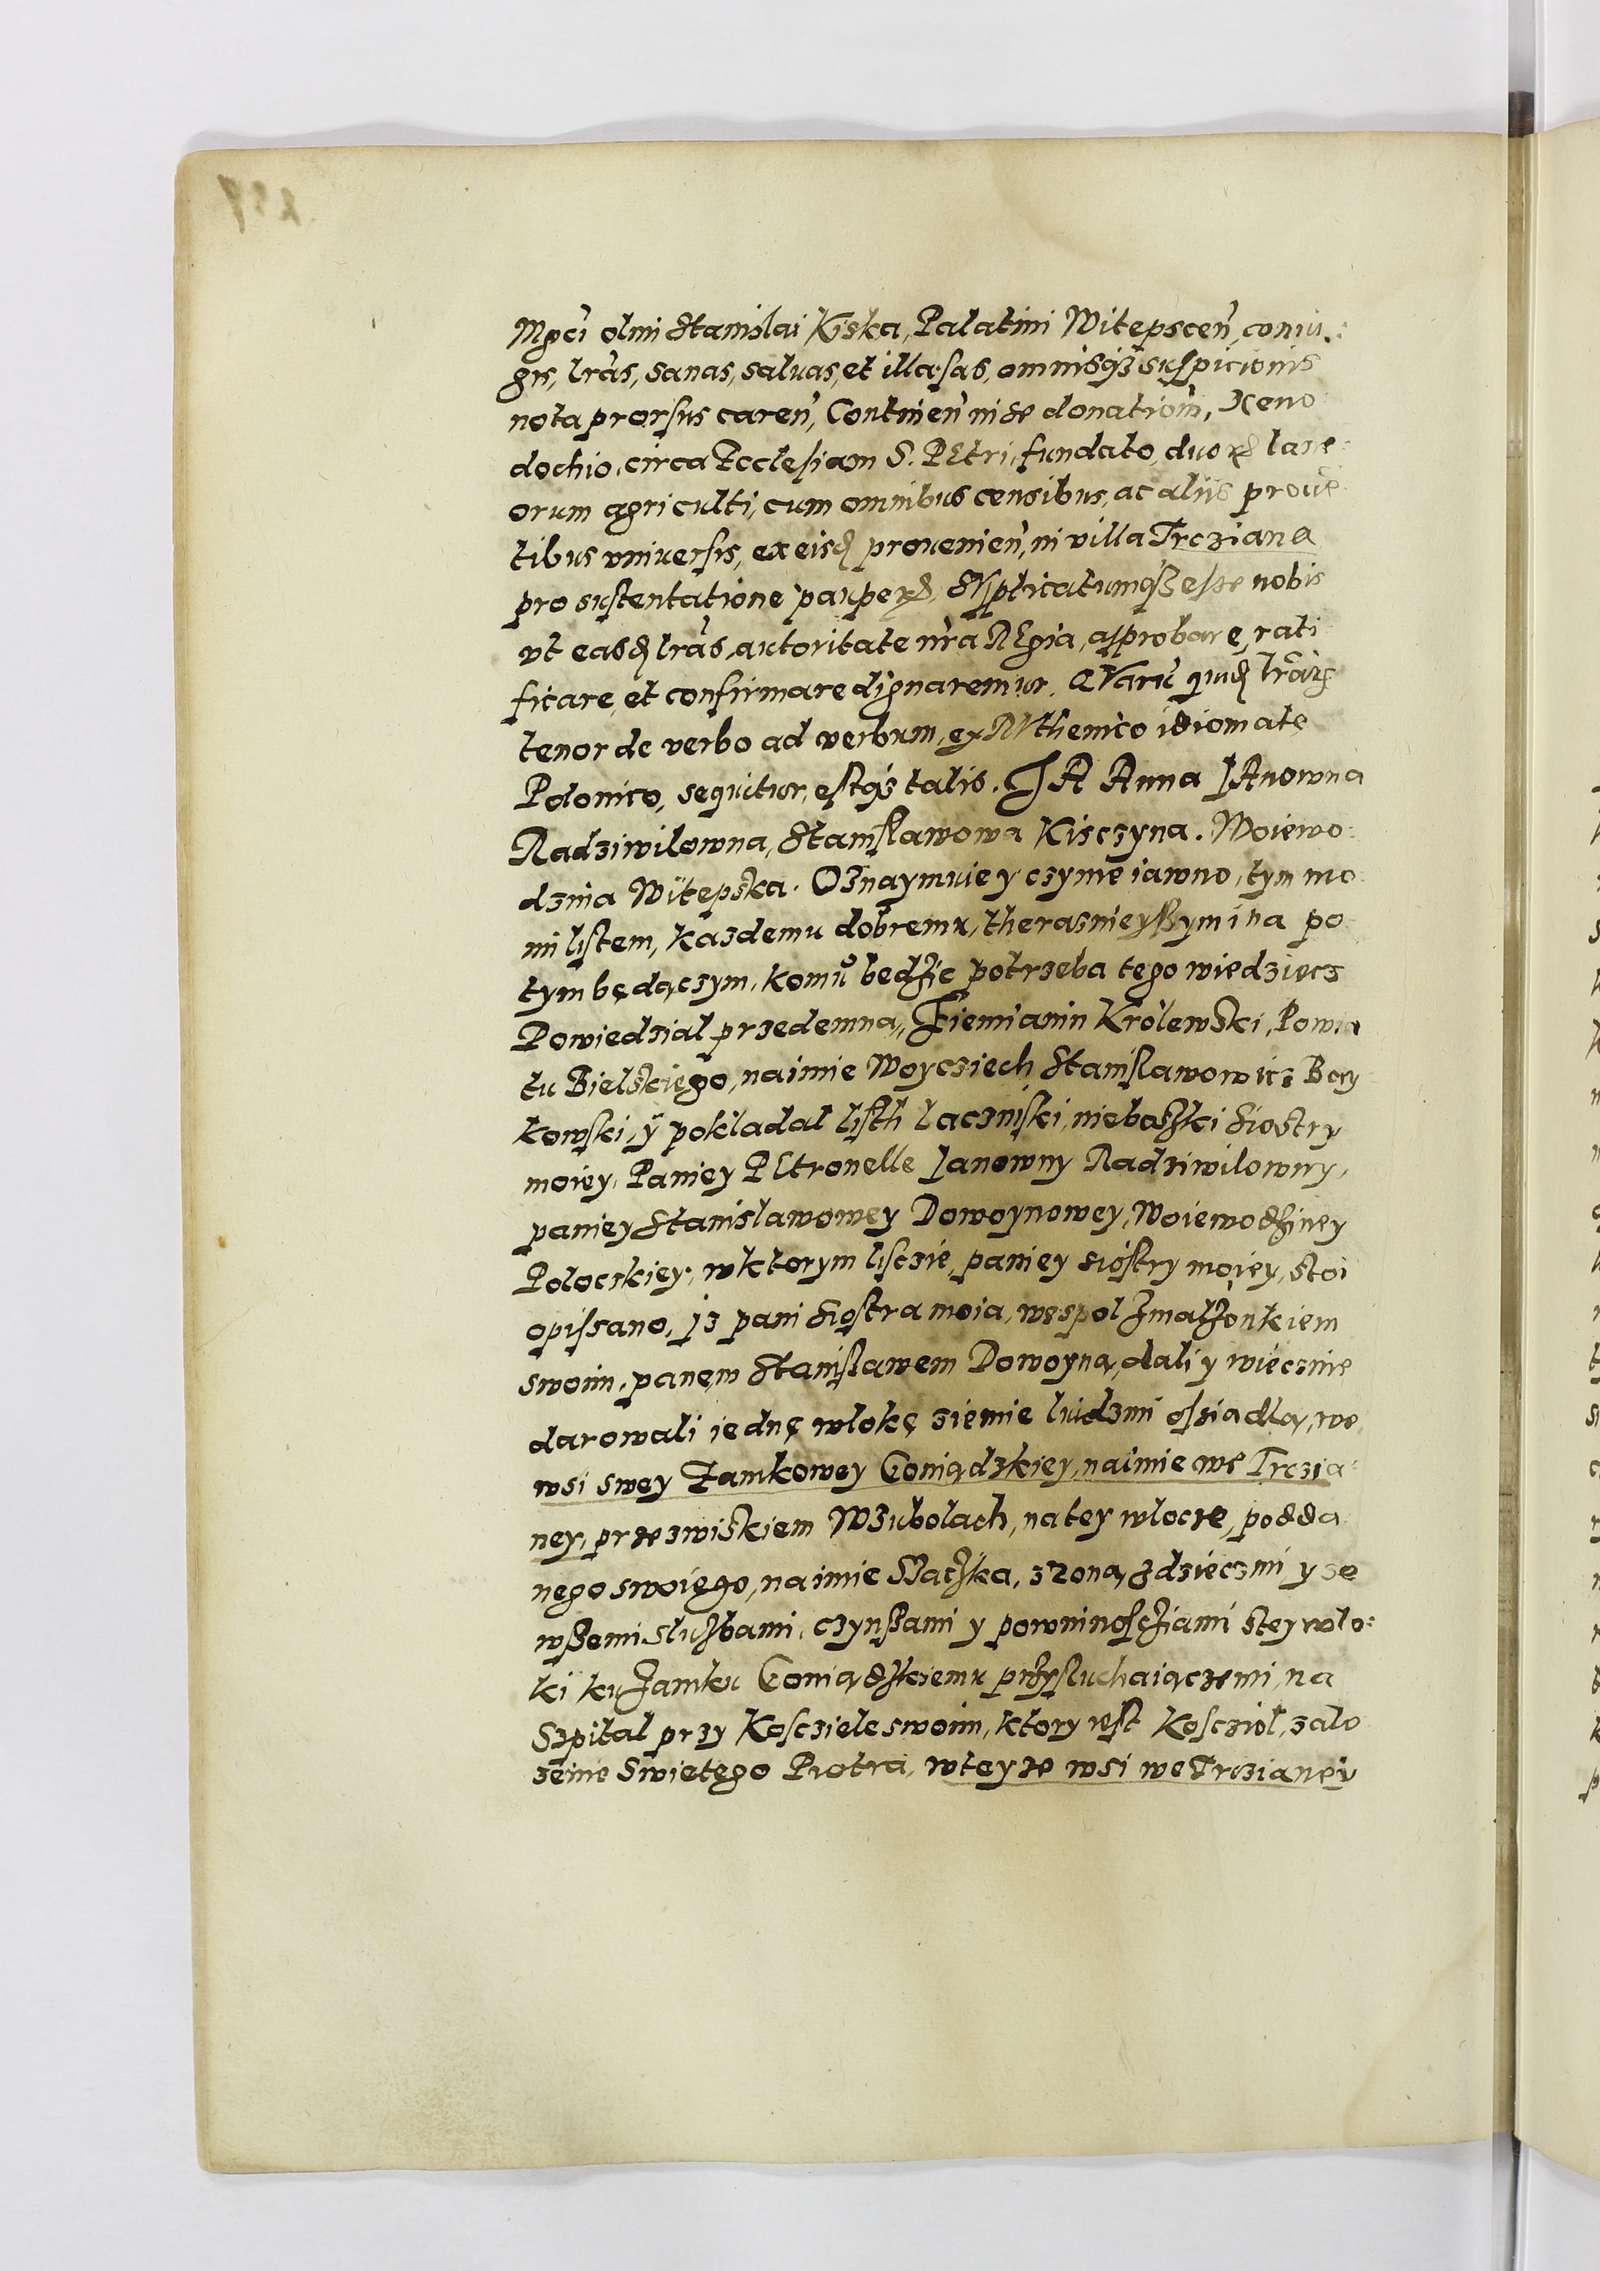 Mgcı olim Stanislai Kiska, Palatini Witepsceń, coniu:
gis, lrás, sanas, saluas, et illæsas, omnisq3 suspicionis
nota prorsus careń, Contineń in se donationem, Xeno
dochio, circa Ecclesiam S. PEtri, fundato, duorꝝ lane:
orum agri culti, cum omnibus censibus, ac aliis prouē
tibus vniuersis, ex eisd prouenień, in villa Trcziana
pro sustentatione pauperꝝ, SVpplicatumq3 esse nobis
vt easd lrás, autoritate nrá REgia, approbare, rati
ficare, et confirmare dignaremur. QVarū quid lrárꝝ
tenor de verbo ad verbum, ex RVthenico idiomate
Polonico, sequitur, estq3 talis. JA Anna JAnowna
Radziwilowna, Stanislawowa Kisczyna. Woiewo:
dzina Witepska. OZnaymuie y czynie iawno, tym mo
im listem, kazdemu dobremu, therasnieyszym i na po
tym będączym, komu bedzie potrzeba tego wiedziecz
Powiedzial przedemną, Ziemianin Królewski, Powia
tu Bielskiego, na imie Woyciech Stanislawowicz Bory
kowski, y pokladal listh laczinski, nieboszki Siostry
moiey, Paniey PEtronelle Janowny Radziwilowny,
paniey Stanislawowey Dowoynowey, Woiewodziney
Polockiey, w ktorym lisczie, paniey siostry moiey, stoi
opissano, jz pani Siostra moia, wespol z malzonkiem
swoim, panem Stanislawem Dowoyną, dali y wiecznie
darowali iednę wlokę ziemie ludzmi osiadlą, we
wsi swey Zamkowey Goniądzkiey, na imie we Trczia:
ney, przezwiskiem W Zubolach, na tey wlocze, podda
nego swoiego, na imie Maczka, z zoną, z dzieczmi y ze
wszemi sluzbami, czynszami y powinnosciami s tey wlo:
ki ku Zamku Goniądzkiemu przysluchaiączemi, na
Szpital przy Kosciele swoim, ktory iest Kosciol, zalo
zenie Swietego Piotra, w teyze wsi we Trczianey